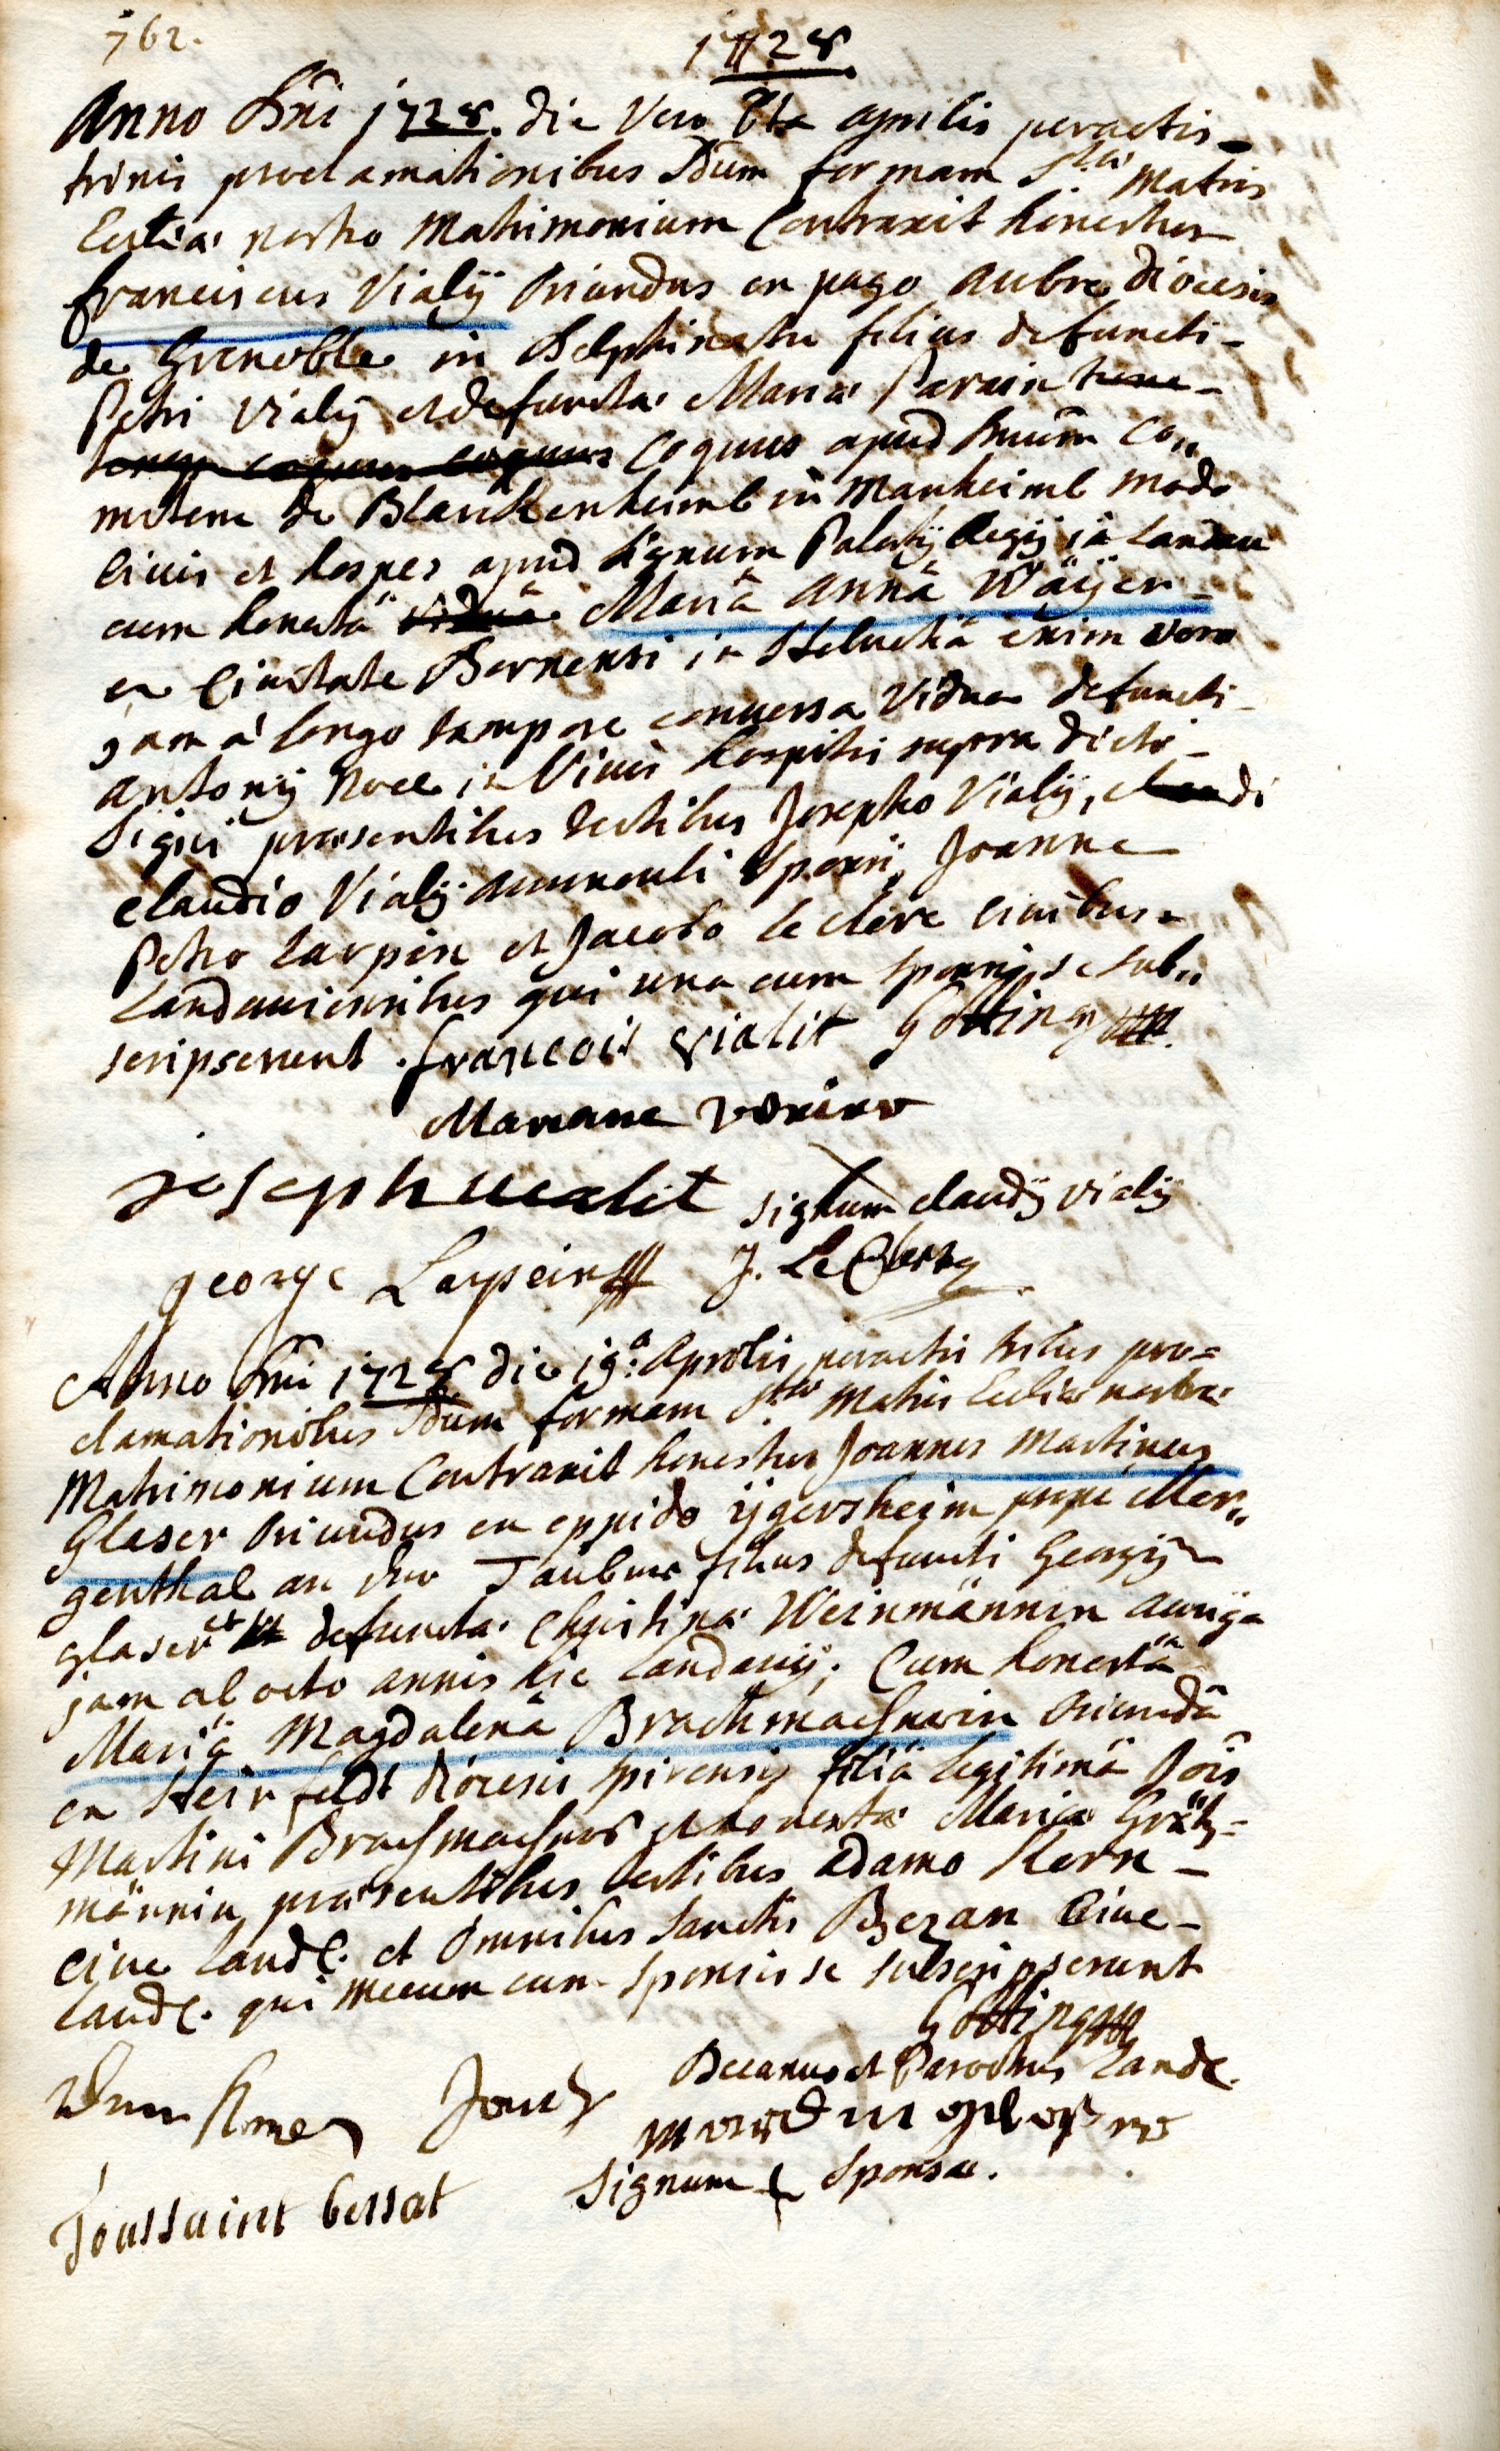 762.
1728.
Anno Dni 1728. die vero 6ta aprilis peractis
trinis proclamationibus Sdum formam Stae Matris
Ecclia nostra Matrimonium Contraxit honestus
Franciscus Vialÿ Oriundus ex pago aubre diocesis
de Grenoble in Delphinatu filius defuncti
Petri Vialÿ et defuncta Maria Parain
Coquus apud Co„
mitem de Blanckenheimb in Manheimb modo
Civis et hospes apud signum Palatÿ Regÿ in Landau
cum honestâ viduâ Mariâ Annâ Wäÿer
ex Civitate Bernensi in Helvetiâ enim vero
jam à longo tempore conversa Vidua defuncti
Antonÿ Noel in Vivis hospitis supra dicti
Signi praesentibus testibus Josepho Vialÿ,
Claudio Vialÿ avunculi Sponsi, Joanne
Petro Larpin et Jacobo le clerc civibus
Landaviensibus qui una cum sponsis se sub„
scripserunt. francois vialit Götting
Mariane
joseph vialit Signum claudÿ vialÿ
george Larpein J. Le Clerc
Anno Dni 1728 die 19.a Aprilis peractis tribus pro=
clamationibus Sdum formam Stae Matris Ecclia nostra
Matrimonium Contraxit honestus Joannes Martinus
Glaser Oriundus ex oppido ÿgersheim prope Mer„
genthal an der Tauber filius defuncti Georgÿ
glaser et defuncta Christina Weinmännin auriga
jam ab octo annis hic Landavÿ; Cum honestâ
Mariâ Magdalenâ Brachmachnerin Oriundâ
ex Steinfeldt diocesis spirensis filiâ legitimâ Jois
Martini Brachmachner et honesta Maria Grätz=
männin praesentibus testibus Adamo Kern
cive Land. et Omnibus Sanctis Bezan Cive
Land. qui mecum cum sponsis se subscripserunt
Götting
Decanus et Parochus Land.
Signum Sponsae.
Toussaint bessat